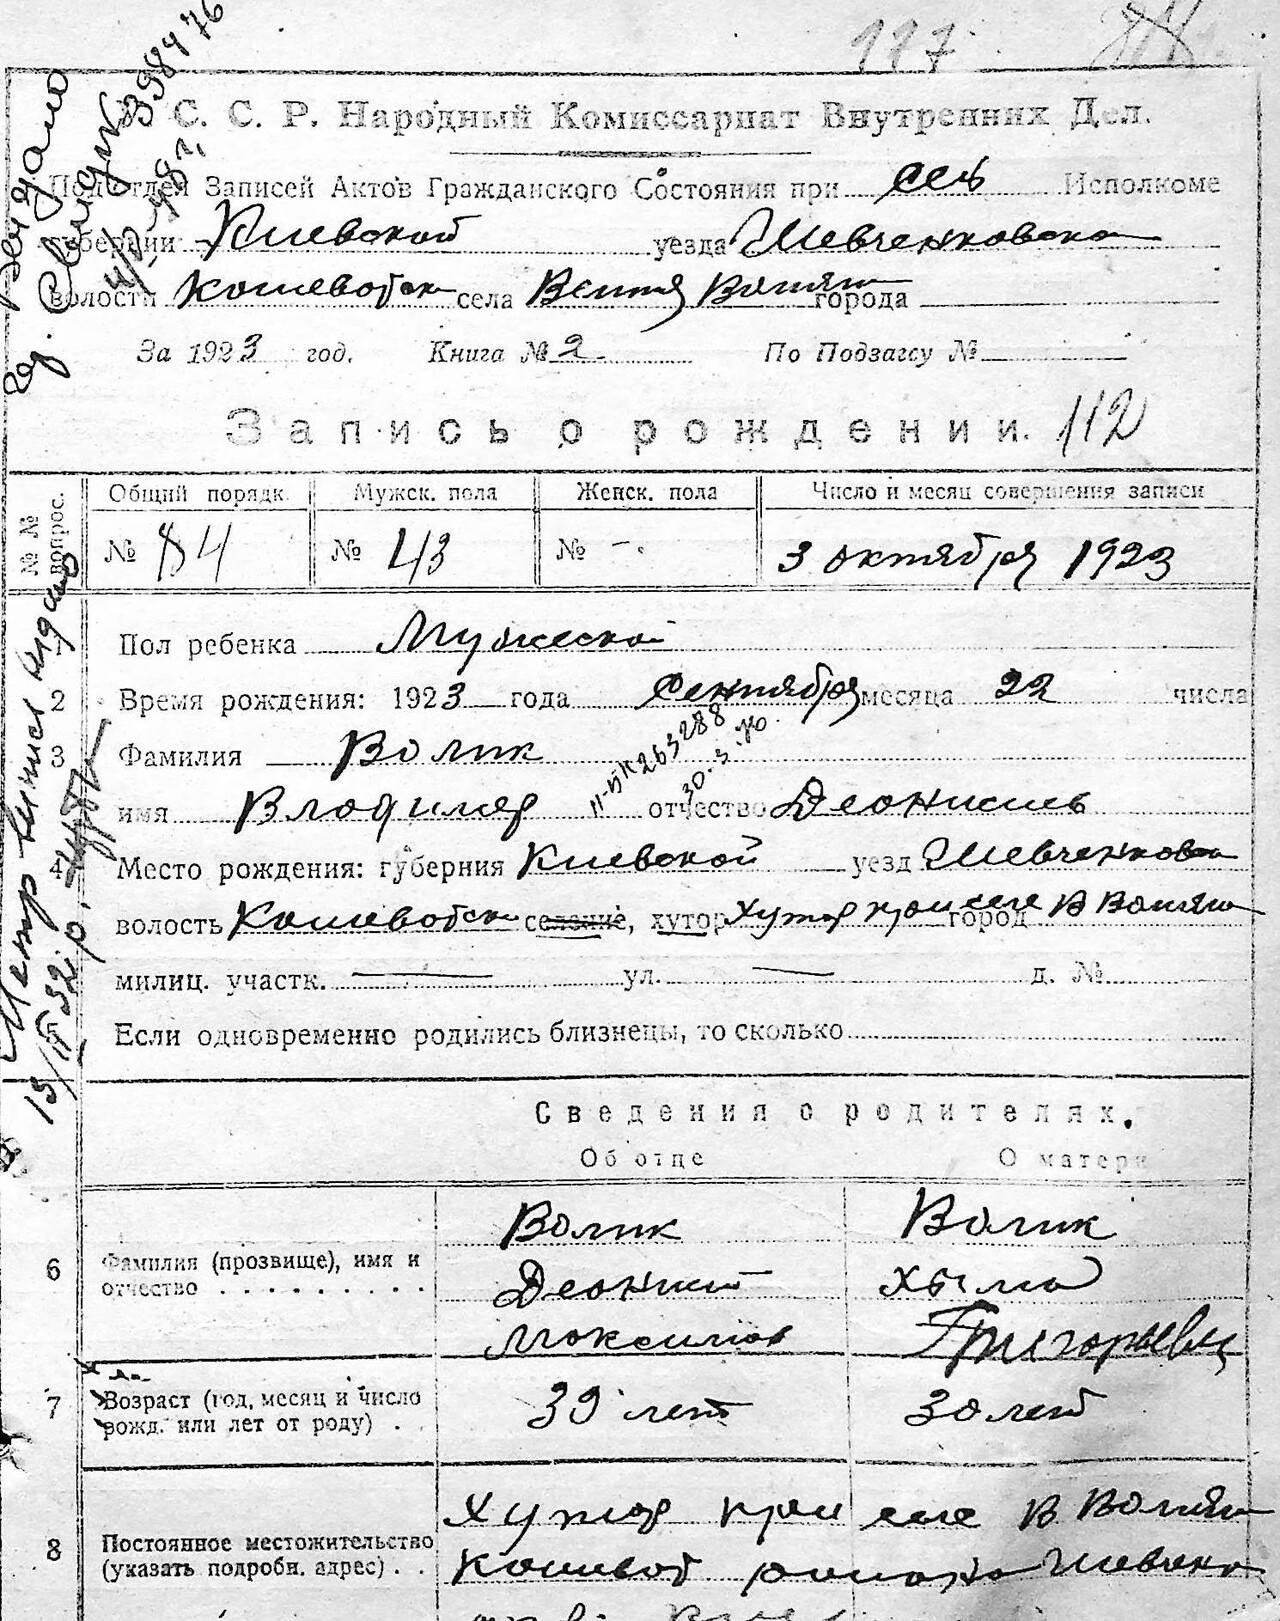 117
С. С. Р. Народный Комиссариат Внутренних Дел.
Подотдел Записей Актов Гражданского Состояния при сель Исполкоме
губернии Киевской уезда Шевченковско
волости села города
За 1923 год. Книга № 2. По Подзагсу №
Запись о рождении. 112
№ № вопрос. Общий порядк. Мужск. пола Женск. пола Число и месяц совершения записи
№ 84 № 43 № -. 3 октября 1923
1 Пол ребенка Мужеской
2 Время рождения: 1923 года Сентября месяца 22 числа
3 Фамилия Волик
имя Владимер отчество Деонисиев
11-БК 263288
30.3.
4 Место рождения: губерния Киевской уезд Шевченковско
волость селение, хутор Хутор при селе город В
милиц. участк. — ул. — д. №
Если одновременно родились близнецы, то сколько
Сведения о родителях.
Об отце О матери
6 Фамилия (прозвище), имя и отчество Волик Волик
Деонисий
Максимов Григорьевн
7 Возраст (год, месяц и число рожд. или лет от роду) . 39 лет 30 лет
8 Постоянное местожительство (указать подробн. адрес) . . Хутор при селе В